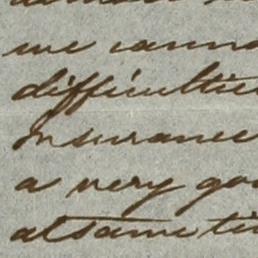 we canno
difficultie
Insurance
a very goo
at same ti